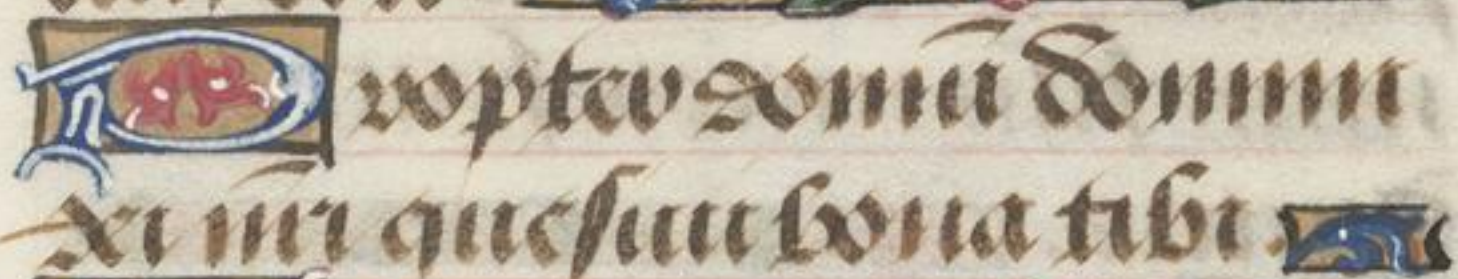 Propter domū domini
dei nr̄i quesiui bona tibi.